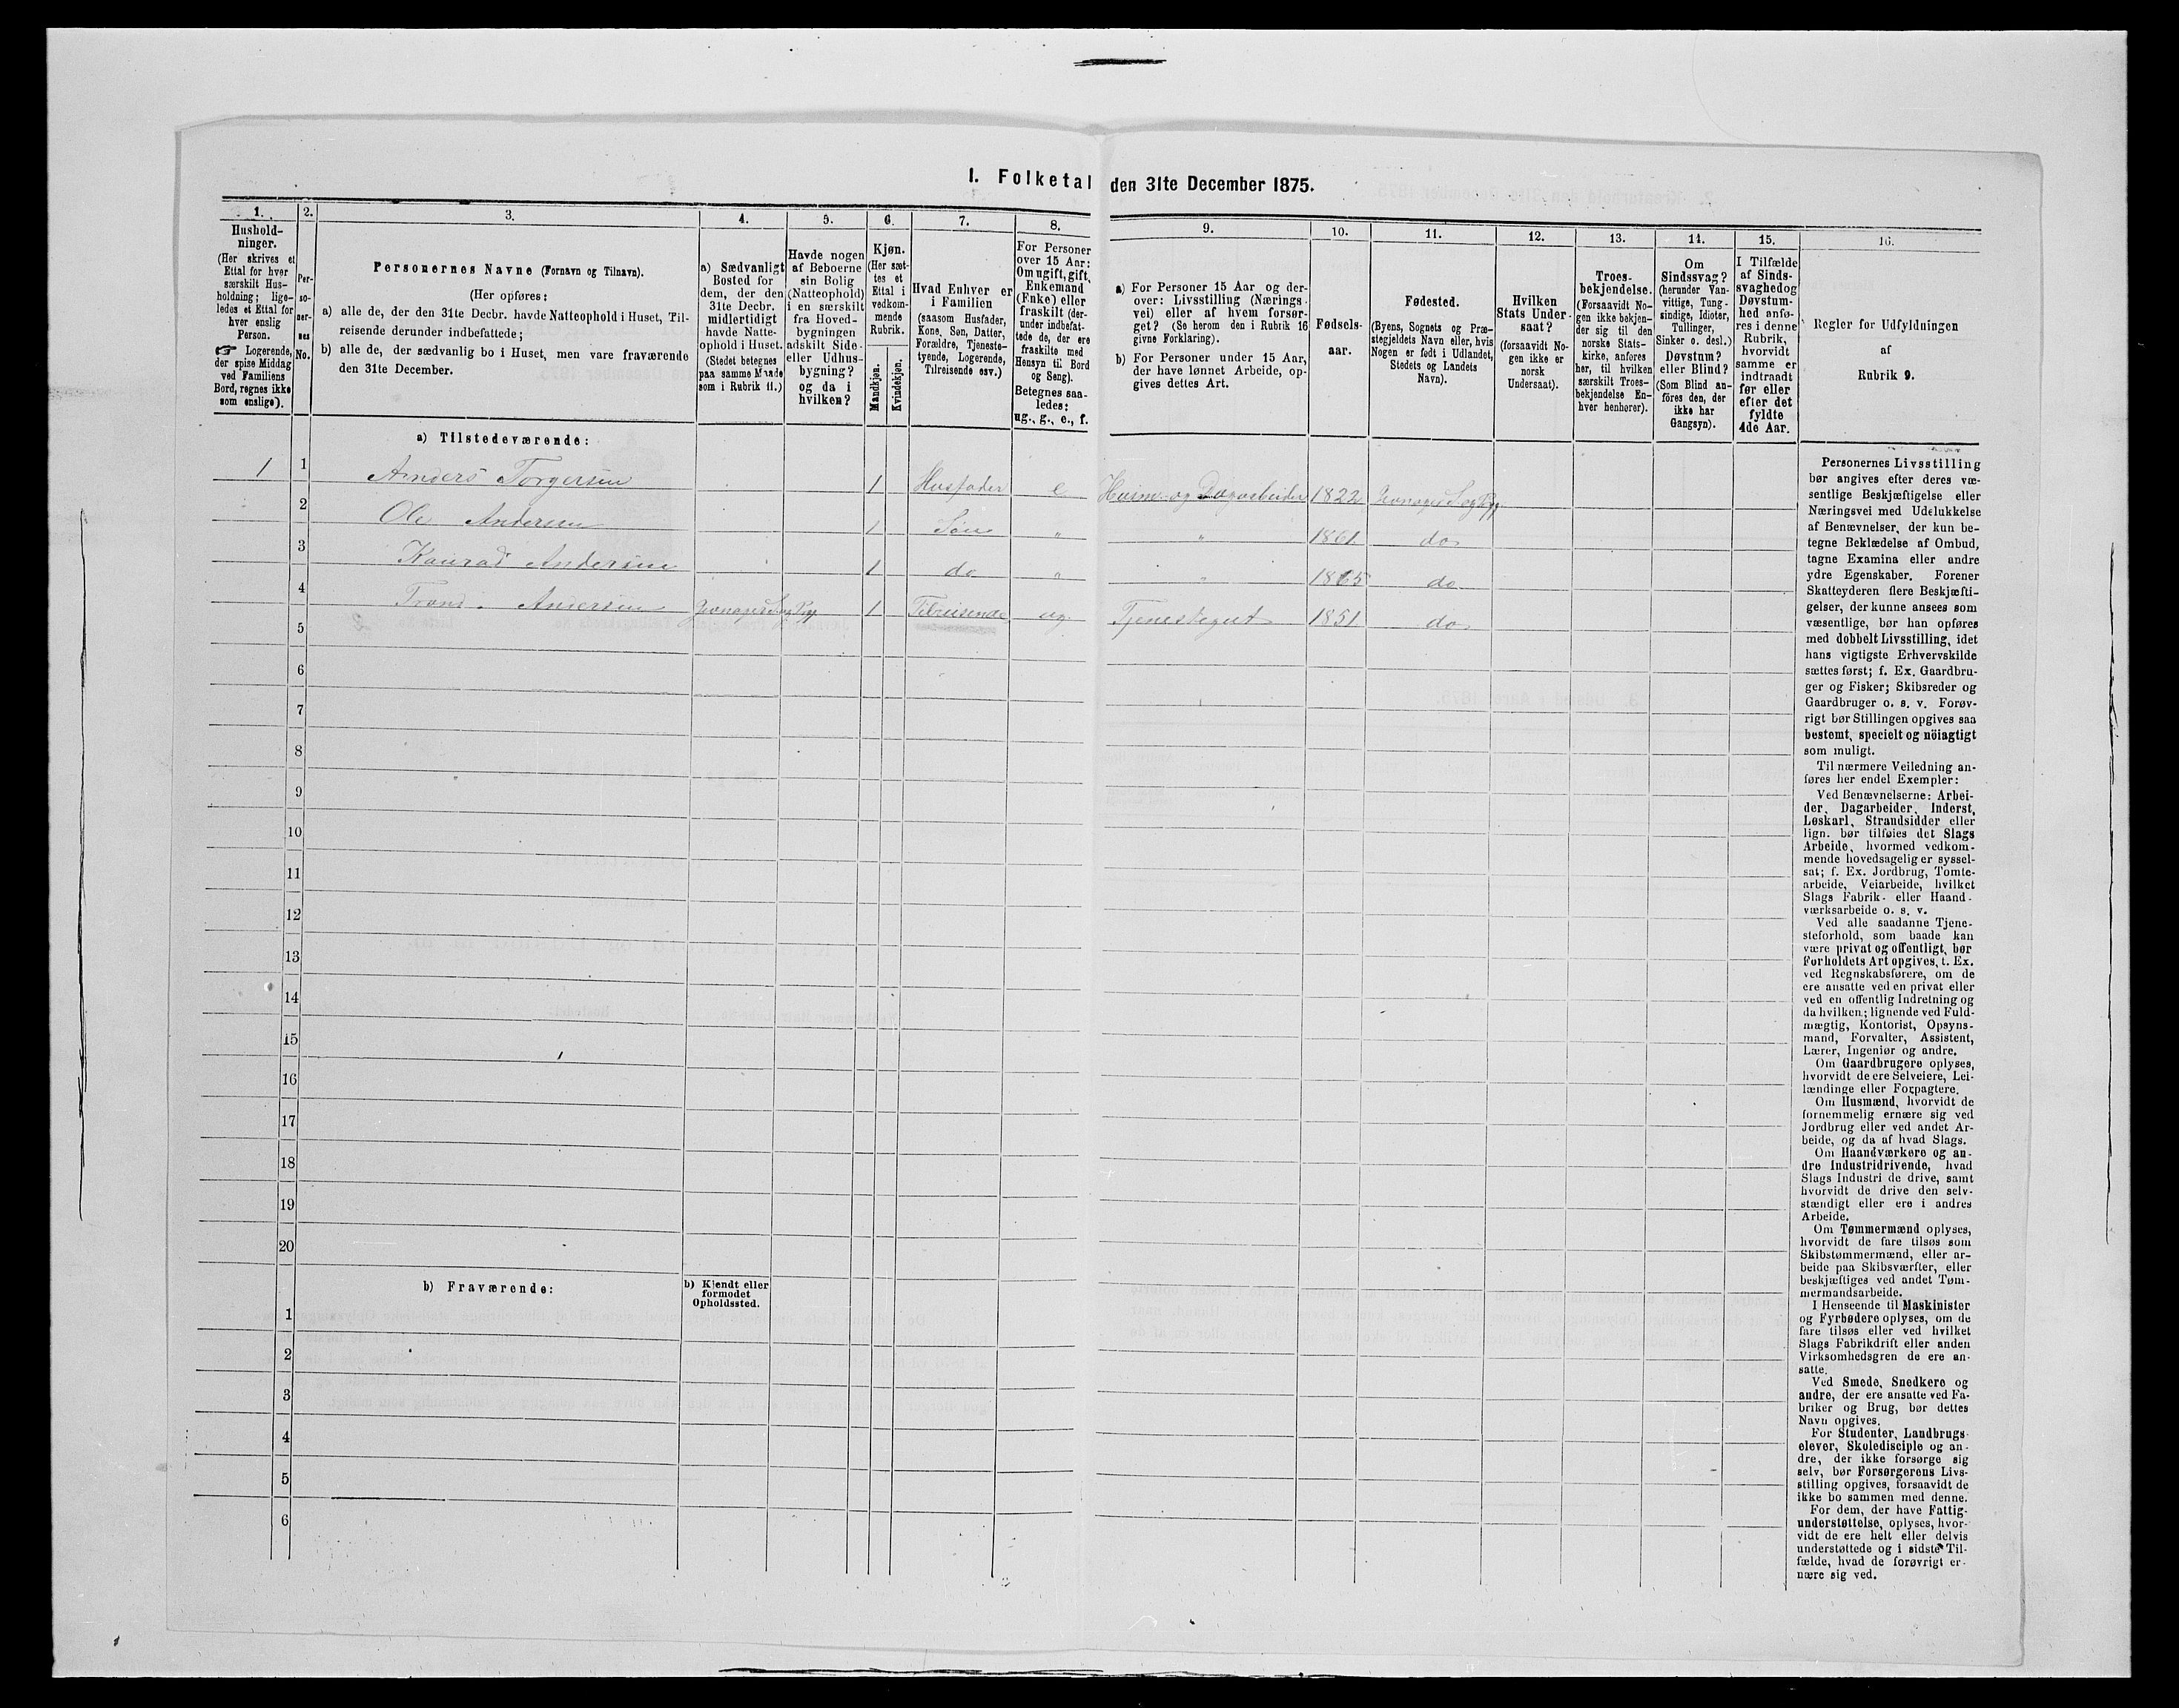 I. Folketal den 31te December 1875.
1. 2. 3. 4. 5. 6. 7. 8. 9. 10. 11. 12. 13. 14. 15. 16.
Hushold-
ninger.
(Her skrives et
Ettal for hver
særskilt Hus-
holdning; lige-
ledes et Ettal for
hver enslig
Person.
Logerende,
der spise Middag
ved Familiens
Bord, regnes ikke
som enslige).
Per-
so-
ner-
nes
No.
Personernes Navne (Fornavn og Tilnavn).
(Her opføres:
a) alle de, der den 31te Decbr. havde Natteophold i Huset, Til-
reisende derunder indbefattede;
b) alle de, der sædvanlig bo i Huset, men vare fraværende
den 31te December.
a) Sædvanligt
Bosted for
dem, der den
31te Decbr.
midlertidigt
havde Natte-
ophold i Huset.
(Stedet betegnes
paa samme Maade
som i Rubrik 11.)
Havde nogen
af Beboerne
sin Bolig
(Natteophold)
i en særskilt
fra Hoved-
bygningen
adskilt Side-
eller Udhus-
bygning?
og da i
hvilken?
Kjøn.
(Her sæt-
tes et
Ettal i
vedkom-
mende
Rubrik.
Mandkjøn.
Kvindekjøn.
Hvad Enhver er
i Familien
(saasom Husfader,
Kone, Søn, Datter,
Forældre, Tjeneste-
tyende, Logerende,
Tilreisende osv.)
For Personer
over 15 Aar:
Om ugift, gift,
Enkemand
(Enke) eller
fraskilt (der-
under indbefat-
tede de, der ere
fraskilte med
Hensyn til Bord
og Seng).
Betegnes saa-
ledes:
ug., g., e., f.
a) For Personer 15 Aar og der-
over: Livsstilling (Nærings-
vei) eller af hvem forsør-
get? (Se herom den i Rubrik 16
givne Forklaring).
b) For Personer under 15 Aar,
der have lønnet Arbeide, op-
gives dettes Art.
Fødsels-
aar.
Fødested.
(Byens, Sognets og Præ-
stegjeldets Navn eller, hvis
Nogen er født i Udlandet,
Stedets og Landets
Navn).
Hvilken
Stats Under-
saat?
(forsaavidt No-
gen ikke er
norsk
Undersaat).
Troes-
bekjendelse.
(Forsaavidt No-
gen ikke bekjen-
der sig til den
norske Stats-
kirke, anføres
her, til hvilken
særskilt Troes-
bekjendelse En-
hver henhører).
Om
Sindssvag?
(herunder Van-
vittige, Tung-
sindige, Idioter,
Tullinger,
Sinker o. desl.)
Døvstum?
eller Blind?
(Som Blind an-
føres den, der
ikke har
Gangsyn).
I Tilfælde
af Sinds-
svaghed og
Døvstum-
hed anfø-
res i denne
Rubrik,
hvorvidt
samme er
indtraadt
før eller
efter det
fyldte
4de Aar.
Regler for Udfyldningen
af
Rubrik 9.
a) Tilstedeværende:
1 1 Anders Torgersen 1 Husfader e Husm. og Dagarbeider 1822
2 Ole Andersen 1 Søn " " 1861 do
3 Konrad Andersen 1 do " " 1865 do
4 Trond Andersen 1 Tilreisende ug. Tjenestegut 1851 do
5
6
7
8
9
10
11
12
13
14
15
16
17
18
19
20
b) Fraværende:
b) Kjendt eller
formodet
Opholdssted.
1
2
3
4
5
6
Personernes Livsstilling
bør angives efter deres væ-
sentlige Beskjæftigelse eller
Næringsvei med Udelukkelse
af Benævnelser, der kun be-
tegne Beklædelse af Ombud,
tagne Examina eller andre
ydre Egenskaber. Forener
Skatteyderen flere Beskjæfti-
gelser, der kunne ansees som
væsentlige, bør han opføres
med dobbelt Livsstilling, idet
hans vigtigste Erhvervskilde
sættes først; f. Ex. Gaardbru-
ger og Fisker; Skibsreder og
Gaardbruger o. s. v. Forøv-
rigt bør Stillingen opgives saa
bestemt, specielt og nöiagtigt
som muligt.
Til nærmere Veiledning an-
føres her endel Exempler:
Ved Benævnelserne: Arbei-
der, Dagarbeider, Inderst,
Løskarl, Strandsidder eller
lign. bør tilføies det Slags
Arbeide, hvormed vedkom-
mende hovedsagelig er syssel-
sat; f. Ex. Jordbrug, Tomte-
arbeide, Veiarbeide, hvilket
Slags Fabrik- eller Haand-
værksarbeide o. s. v.
Ved alle saadanne Tjene-
steforhold, som baade kan
være privat og offentligt, bør
Forholdets Art opgives, t. Ex.
ved Regnskabsførere, om de
ere ansatte ved en privat eller
ved en offentlig Indretning og
da hvilken; lignende ved Fuld-
mægtig, Kontorist, Opsyns-
mand, Forvalter, Assistent,
Lærer, Ingeniør og andre.
Om Gaardbrugere oplyses,
hvorvidt de ere Selveiere, Lei-
lændinge eller Forpagtere.
Om Husmænd, hvorvidt de
fornemmelig ernære sig ved
Jordbrug eller ved andet Ar-
beide, og da af hvad Slags.
Om Haandværkere og an-
dre Industridrivende, hvad
Slags Industri de drive, samt
hvorvidt de drive den selv-
stændigt eller ere i andres
Arbeide.
Om Tømmermænd oplyses,
hvorvidt de fare tilsøs som
Skibstømmermænd, eller ar-
beide paa Skibsværfter, eller
beskjæftiges ved andet Tøm-
mermandsarbeide.
I Henseende til Maskinister
og Fyrbødere oplyses, om de
fare tilsøs eller ved hvilket
Slags Fabrikdrift eller anden
Virksomhedsgren de ere an-
satte.
Ved Smede, Snedkere og
andre, der ere ansatte ved Fa-
briker og Brug, bør dettes
Navn opgives.
For Studenter, Landbrugs-
elever, Skoledisciple og an-
dre, der ikke forsørge sig
selv, bør Forsørgerens Livs-
stilling opgives, forsaavidt de
ikke bo sammen med denne.
For dem, der have Fattig-
understøttelse, oplyses, hvor-
vidt de ere helt eller delvis
understøttede og i sidste Til-
fælde, hvad de forøvrigt er-
nære sig ved.